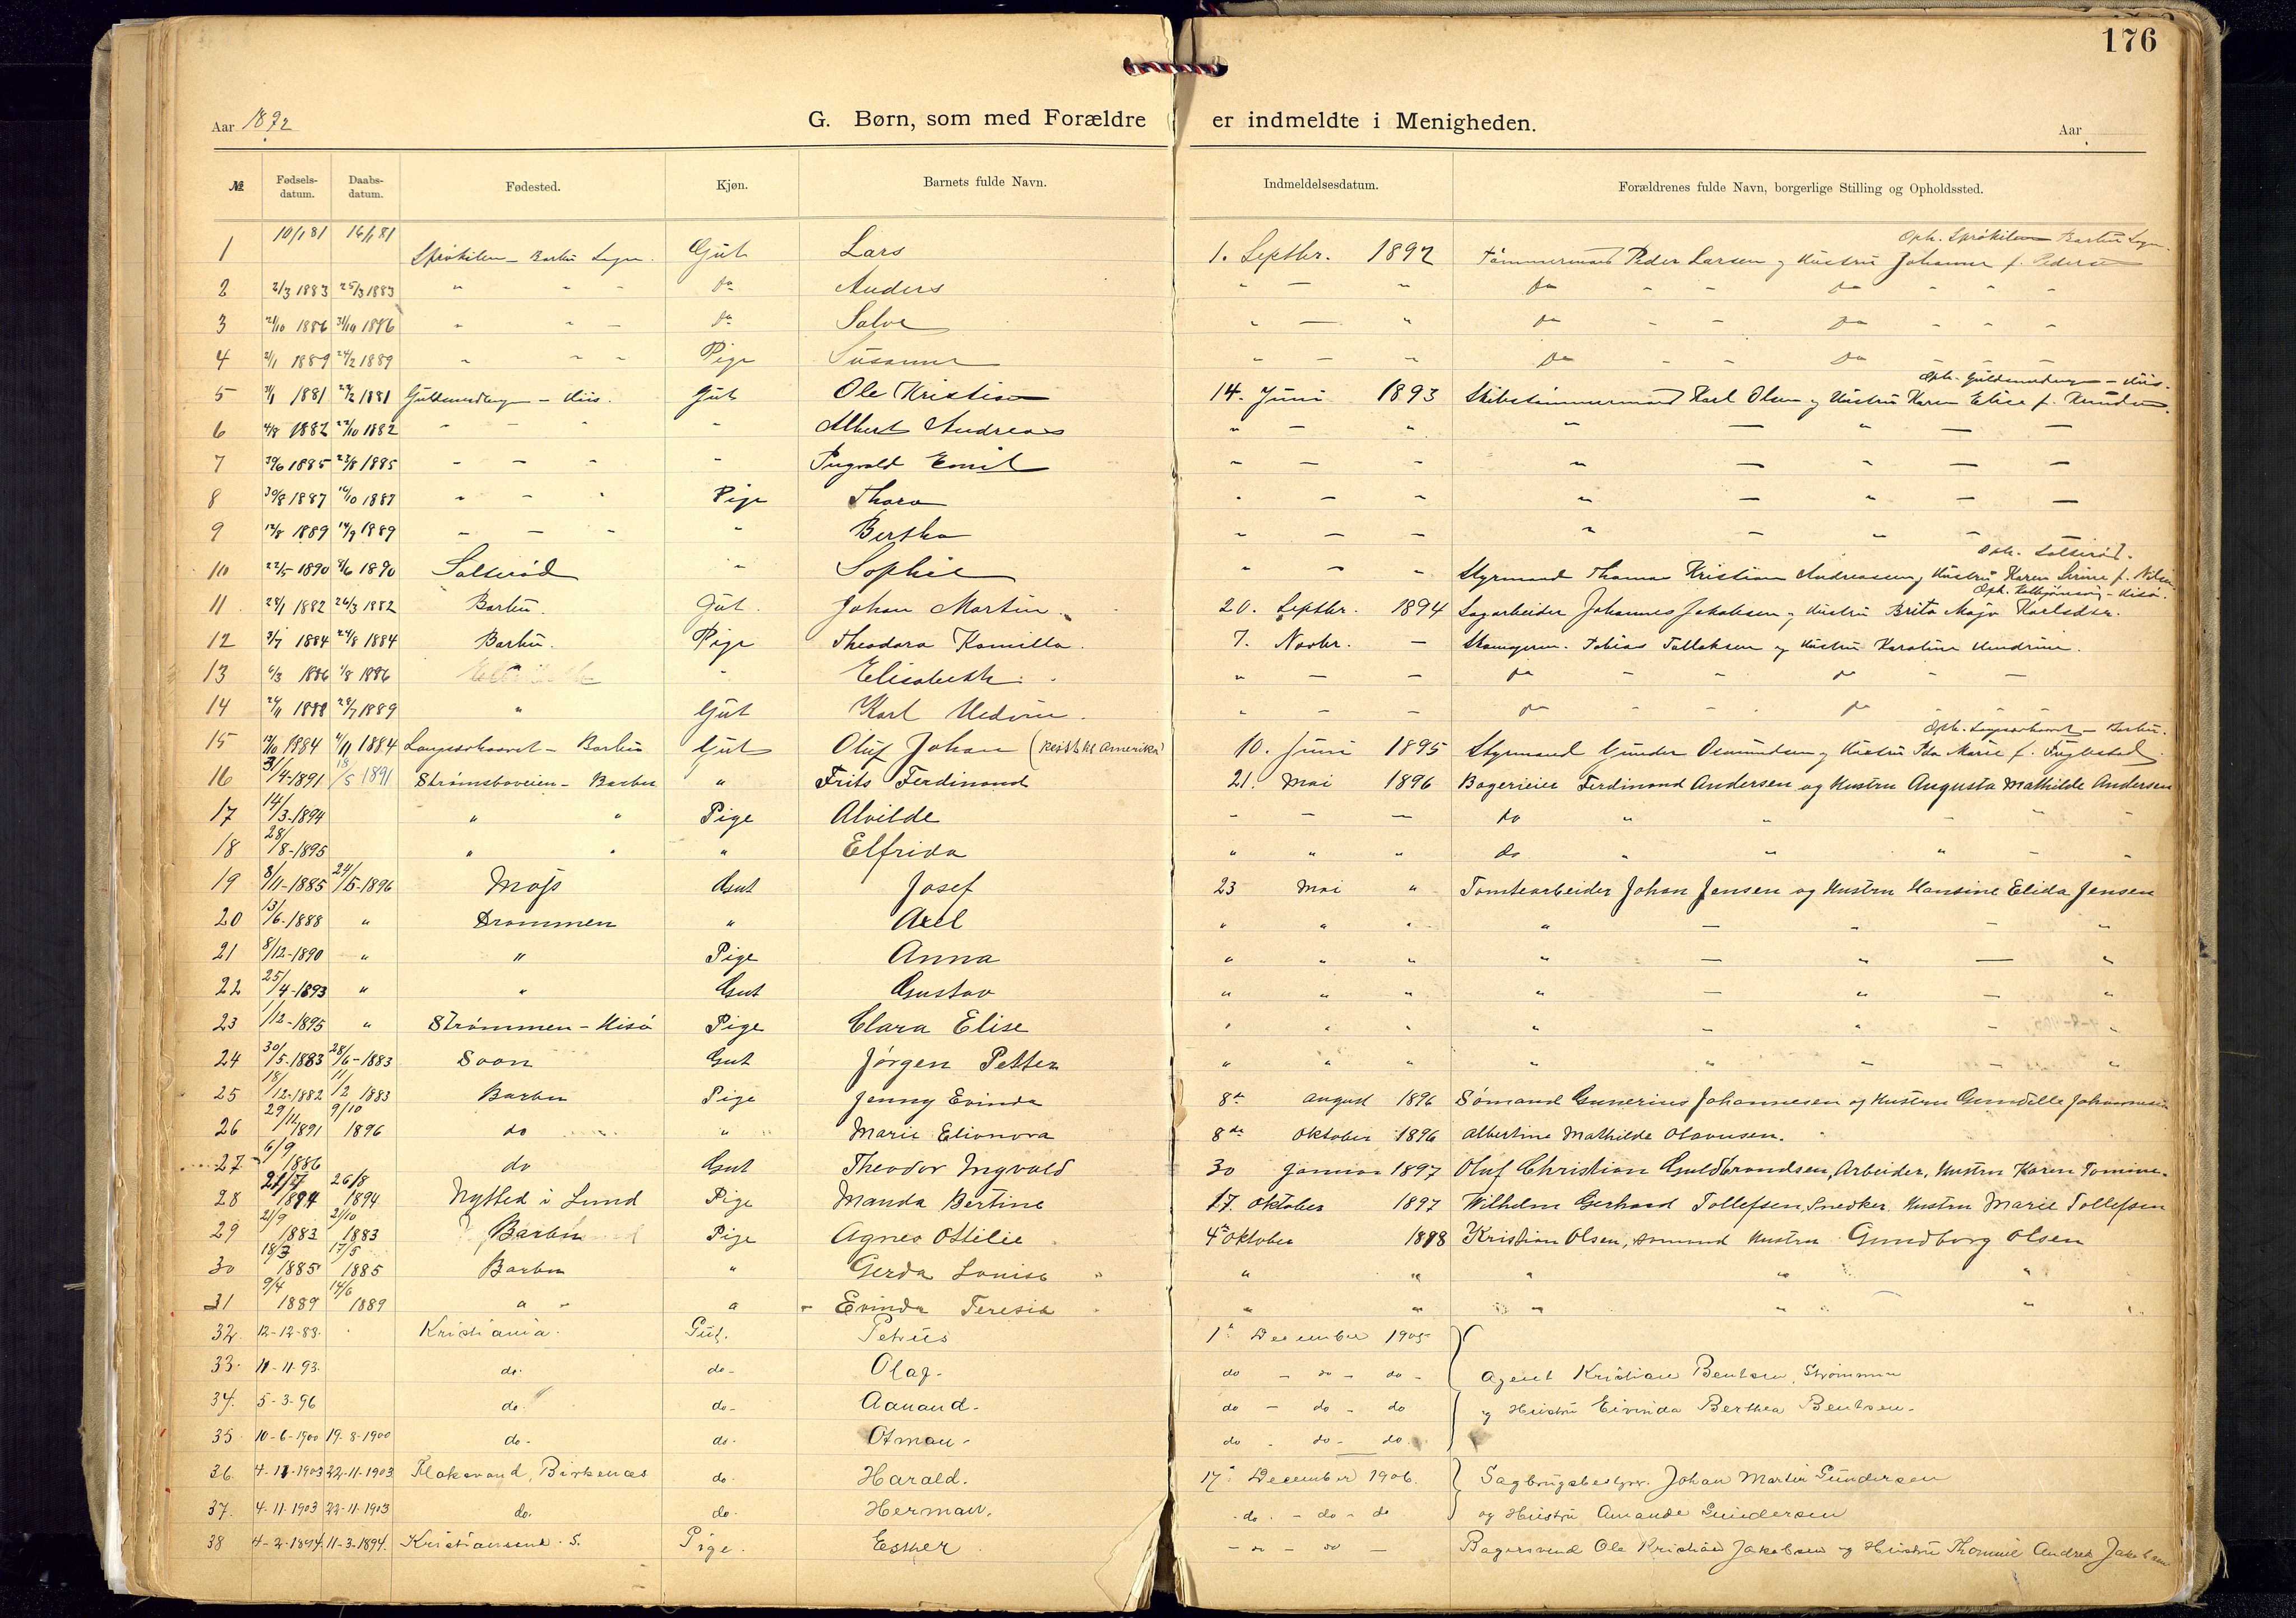 176
Aar 1892 G. Børn, som med Forældre er indmeldte i Menigheden. Aar
№ Fødsels-datum. Daabs-datum. Fødested. Kjøn. Barnets fulde Navn. Indmeldelsesdatum. Forældrenes fulde Navn, borgerlige Stilling og Opholdssted.
1 10/1 81 16/1 81 Barbu Sogn. Gut Lars 1. Septbr. 1892 Tømmermand Peder Larsen og Hustru Johanne f. Pedersen Oph. Barbu Sogn.
2 2/3 1883 25/3 1883 " - - do Anders " — " do - - do - - -
3 1886 Salve " — " do - - do - - -
4 2/1 1889 24/2 1889 " - - Pige Susanne " — " do - - do - - -
5 1881 1881 - His. Gut Ole Kristian 14. Juni 1893 Skibstømmermand Karl Olsen og Hustru Karen Elise f. Knudsen. Oph. - His.
6 4/8 1882 1882 - - - - Albert Andreas " — " " — " — —
7 30/6 1885 23/8 1885 - - - - Ingvald Emil " — - " — " — —
8 30/8 1887 16/10 1887 - - - Pige Thora - — - " — " — —
9 12/8 1889 14/9 1889 - - - - Bertha - — - " — " — —
10 22/5 1890 8/6 1890 Salterød - Sophie " — " Styrmand Thomas Kristian Andreasen og Hustru Karen Serine f. Nilsen Oph. Salterød.
11. 28/1 1882 26/3 1882 Barbu. Gut. Johan Martin. 20. Septbr. 1894 Sagarbeider Johannes Jakobsen og Hustru Brita Maja Karlsdtr. Oph. - Hisø.
12 3/7 1884 24/8 1884 Barbu. Pige Theodora Kamilla. 7. Novbr. — Skomagerm. Tobias Tallaksen og Hustru Karoline Hendrine.
13 6/3 1886 1/8 1886 - Elisabeth. " — — do - - do - —
14 1888 28/7 1889 " Gut Karl Hedvin. - — — do - - do - —
15 12/10 1884 1884 - Barbu Gut Oluf Johan (Reist til Amerika) 10. Juni 1895 Styrmand Gunder Osmundsen og Hustru Ida Marie f. Oph. - Barbu.
16 31/4-1891 18/5 1891 Strømsboveien - Barbu " Frits Ferdinand 21. Mai 1896 Bagerieier Ferdinand Andersen og Hustru Augusta Mathilde Andersen
17 14/3-1894 " " Pige Alvilde - — — do " " - - "
18 28/8-1895 " " " Elfrida " " " do " " " - "
19 8/11-1885 24/5-1896 Moss Gut Josef 23 Mai " Tomtearbeider Johan Jensen og Hustru Hansine Elida Jensen
20 13/6-1888 " Drammen " Axel " " " " — " — "
21 8/12-1890 " " Pige Anna " " " " — " — "
22 25/4-1893 " " Gut Gustav " " " " — " — "
23 1/12-1895 " Strømmen - Hisø Pige Clara Elise " " " " — " — "
24 30/5-1883 28/6-1883 Soon Gut Jørgen Petter " " " " " " — "
25 18/12-1882 11/2 1883 Barbu Pige Jenny Evinda 8de August 1896 Sømand Gunerius Johannesen og Hustru Gundelle Johannesen
26 29/11 1891 9/10 1896 do " Marie Elionora 8de Oktober 1896 Albertine Mathilde Olavusen.
27. 6/9 1886 do Gut Theodor Ingvald 30 Januar 1897 Oluf Christian Guldbrandsen, Arbeider, Hustru Karen Tomine.
28 21/7 1894 26/8 1894. Nysted i Lund Pige Manda Bertine 17. Oktober 1897 Wilhelm Gerhard Tollefsen, Snedker. Hustru Marie Tollefsen
29 2/9 1883 2/10 1883 Barbu Pige Agnes Ottilie 4de Oktober 1898 Kristian Olsen, sømand Hustru Gundborg Olsen
30 18/3 1885 17/5 1885 Barbu " Gerda Louise " " " " " "
31 9/4 1889 14/6 1889 " " " Evinda Teresia " " " " " "
32. 12-12-83. Kristiania. Gut. Petrus 1ste December 1905
33. 11-11-93. do. do- Olaf. do - do - do - Agent Kristian Bentsen, Strømmen
34. 5-3-96 do. do- Aanand. do - do - do og Hustru Eivinda Berthea Bentsen.
35 10-6-1900 19-8-1900 do. do. Otman. do - do - do.
36. 4-11-1903 22-11-1903 Flakvand, Birkenæs do. Harald. 17de December 1906. Sagbrugsbestyrer. Johan Martin Gundersen
37. 4-11-1903 22-11-1903 do. do. Herman. do. - do - do og Hustru Amande Gundersen
38 4-2-1894. 11-3-1894. Kristianssund. S. Pige. Esther - " - " - Bagersvend Ole Kristian Jakobsen og Hustru Andrea Jakobsen